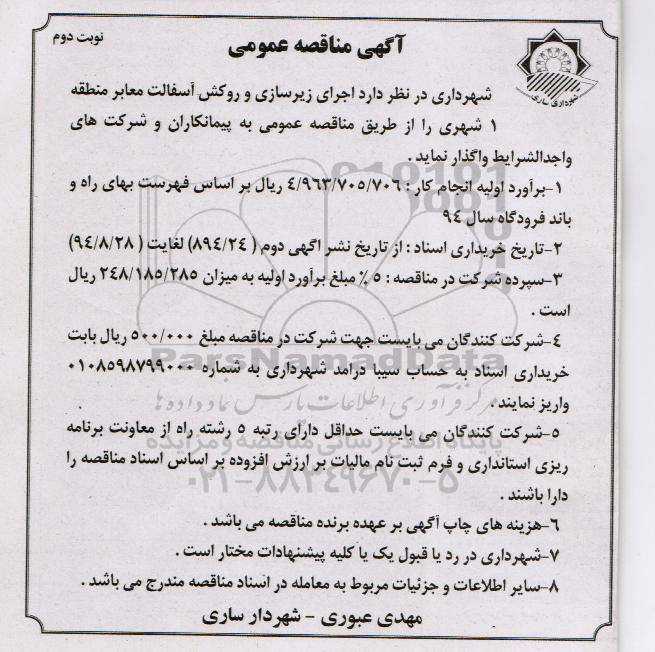 آگهی مناقصه عمومی
نوبت دوم
شهرداری ساری
شهرداری در نظر دارد اجرای زیرسازی و روکش آسفالت معابر منطقه
۱ شهری را از طریق مناقصه عمومی به پیمانکاران و شرکت های
واجدالشرایط واگذار نماید.
۱-برآورد اولیه انجام کار : ۴/۹۶۳/۷۰۵/۷۰۶ ریال بر اساس فهرست بهای راه و
باند فرودگاه سال ۹۴
۲-تاریخ خریداری اسناد : از تاریخ نشر اگهی دوم ( ۸۹۴/۲۴) لغایت ( ۹۴/۸/۲۸)
۳-سپرده شرکت در مناقصه : ۵ ٪ مبلغ برآورد اولیه به میزان ۲۴۸/۱۸۵/۲۸۵ ریال
است .
۴-شرکت کنندگان می بایست جهت شرکت در مناقصه مبلغ ۵۰۰/۰۰۰ ریال بابت
خریداری اسناد به حساب سیبا درآمد شهرداری به شماره ۰۱۰۸۵۹۸۷۹۹۰۰۰
واریز نمایند .
۵-شرکت کنندگان می بایست حداقل دارای رتبه ۵ رشته راه از معاونت برنامه
ریزی استانداری و فرم ثبت نام مالیات بر ارزش افزوده بر اساس اسناد مناقصه را
دارا باشند .
۶-هزینه های چاپ آگهی بر عهده برنده مناقصه می باشد .
۷-شهرداری در رد یا قبول یک یا کلیه پیشنهادات مختار است .
۸-سایر اطلاعات و جزئیات مربوط به معامله در اسناد مناقصه مندرج می باشد .
مهدی عبوری - شهردار ساری
ParsNamadData
مرکز فرآوری اطلاعات پارس نماد داده ها
پایگاه اطلاع رسانی مناقصه و مزایده
۰۲۱-۸۸۳۴۹۶۷۰-۵